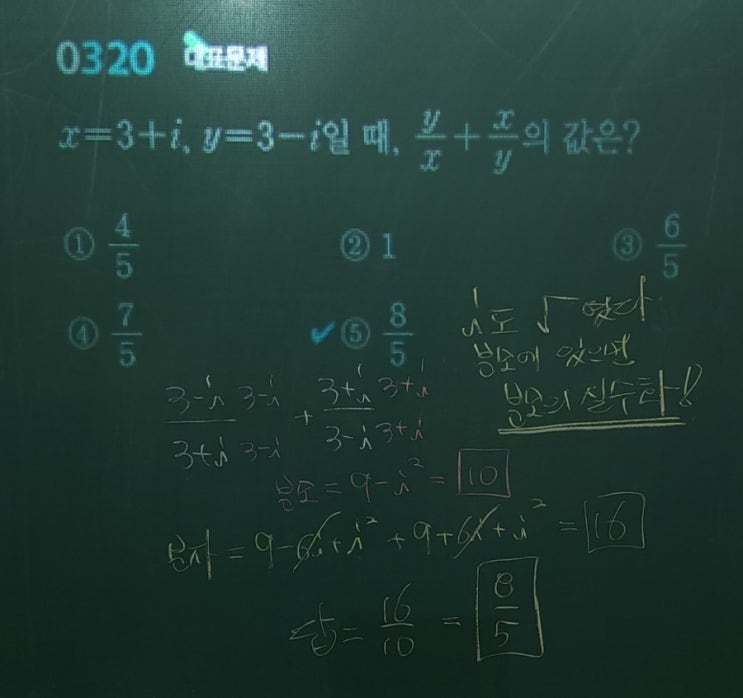 0320 대표문제
x=3+i, y=3-i일 때, y/x + x/y의 값은?
① 4/5 ② 1 ③ 6/5
④ 7/5 ✔⑤ 8/5
i도 √ 였다
분모에 있으면
분모의 실수화!
3-i/3+i 3-i/3-i + 3+i/3-i 3+i/3+i
분모 = 9-i² = 10
분자 = 9-6i+i² + 9+6i+i² = 16
답 = 16/10 = 8/5